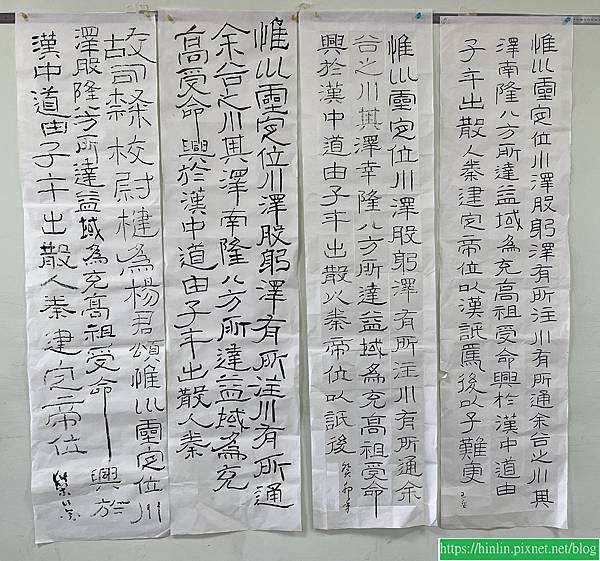 惟巛靈定位川澤股躬澤有所注川有所通余谷之川其
澤南隆八方所達益域為充高祖受命興於漢中道由
子午出散入秦建定帝位以漢詆焉後以子難更
惟巛靈定位川澤股躬澤有所注川有所通余
谷之川其澤南隆八方所達益域為充高祖受命
興於漢中道由子午出散入秦帝位以詆後
癸卯年
惟巛靈定位川澤股躬澤有所注川有所通
余谷之川其澤南隆八方所達益域為充
高受命興於漢中道由子午出散入秦
故司隸校尉楗為楊君頌惟巛靈定位川
澤股隆八方所達益域為充高祖受命興於
漢中道由子午出散入秦建定帝位
https://hinlin.pixnet.net/blog